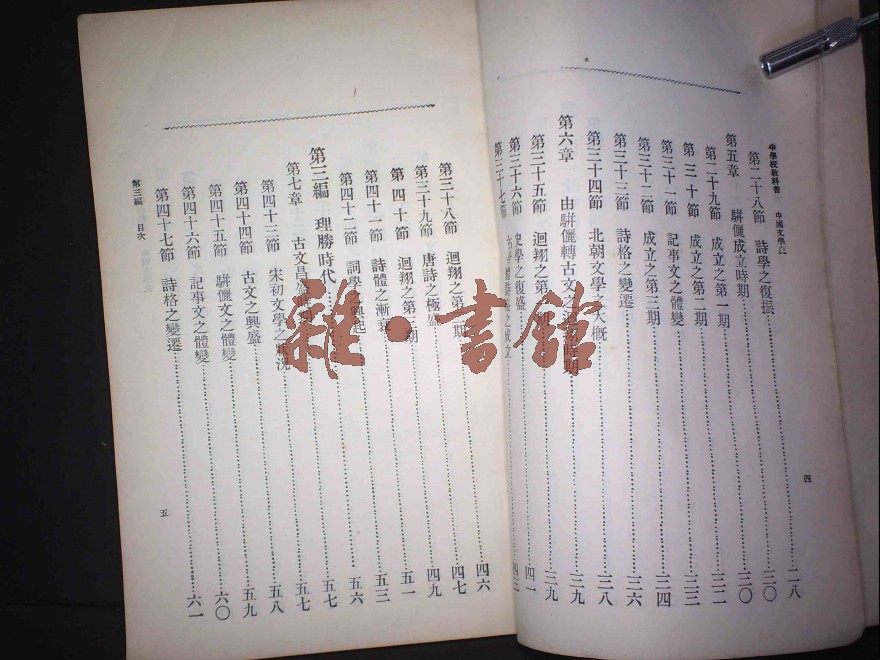 中學校敎科書　中國文學史
第二十八節　詩學之復振……二八
第五章　駢儷成立時期……三〇
第二十九節　成立之第一期……三〇
第三十節　成立之第二期……三二
第三十一節　記事文之體變……三三
第三十二節　成立之第三期……三四
第三十三節　詩格之變遷……三六
第三十四節　北朝文學之大槪……三八
第六章　由駢儷轉古文之迴翔時期……三九
第三十五節　迴翔之第一期……三九
第三十六節　史學之復盛……四一
第三十七節　古今體詩格之成立……四三
四
第三十八節　迴翔之第二期……四六
第三十九節　唐詩之極盛……四七
第四十節　迴翔之第三期……四九
第四十一節　詩體之漸衰……五一
第四十二節　詞學之興起……五三
第三編　理勝時代……五六
第七章　古文昌盛時期……五七
第四十三節　宋初文學之狀況……五七
第四十四節　古文之興盛……五八
第四十五節　駢儷文之體變……五九
第四十六節　記事文之體變……六〇
第四十七節　詩格之變遷……六一
第三編　目次
五
雜·書館